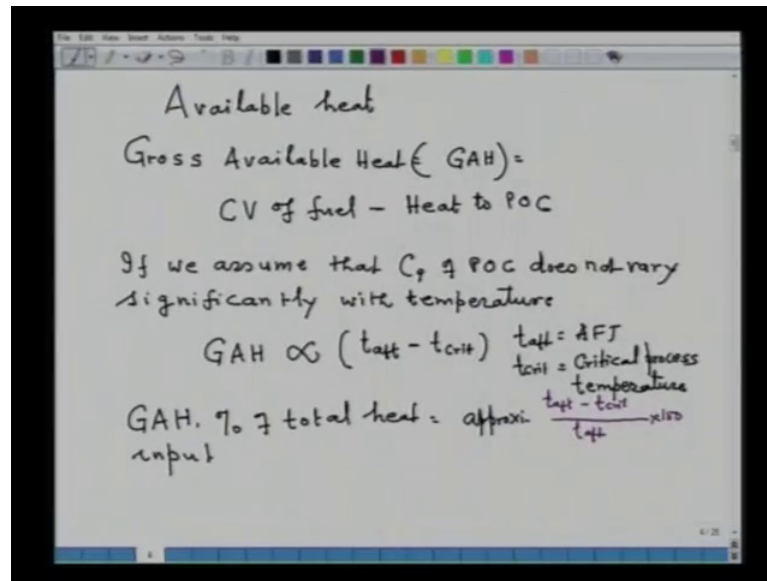 File Edit View Insert Actions Tools Help
Available heat
Gross Available Heat( GAH) =
CV of fuel – Heat to POC
If we assume that Cp of POC does not vary
significantly with temperature
GAH ∝ (taft - tcrit) taft = AFT
tcrit = Critical process
temperature
GAH. % of total heat = approxi. taft - tcrit / taft x100
input